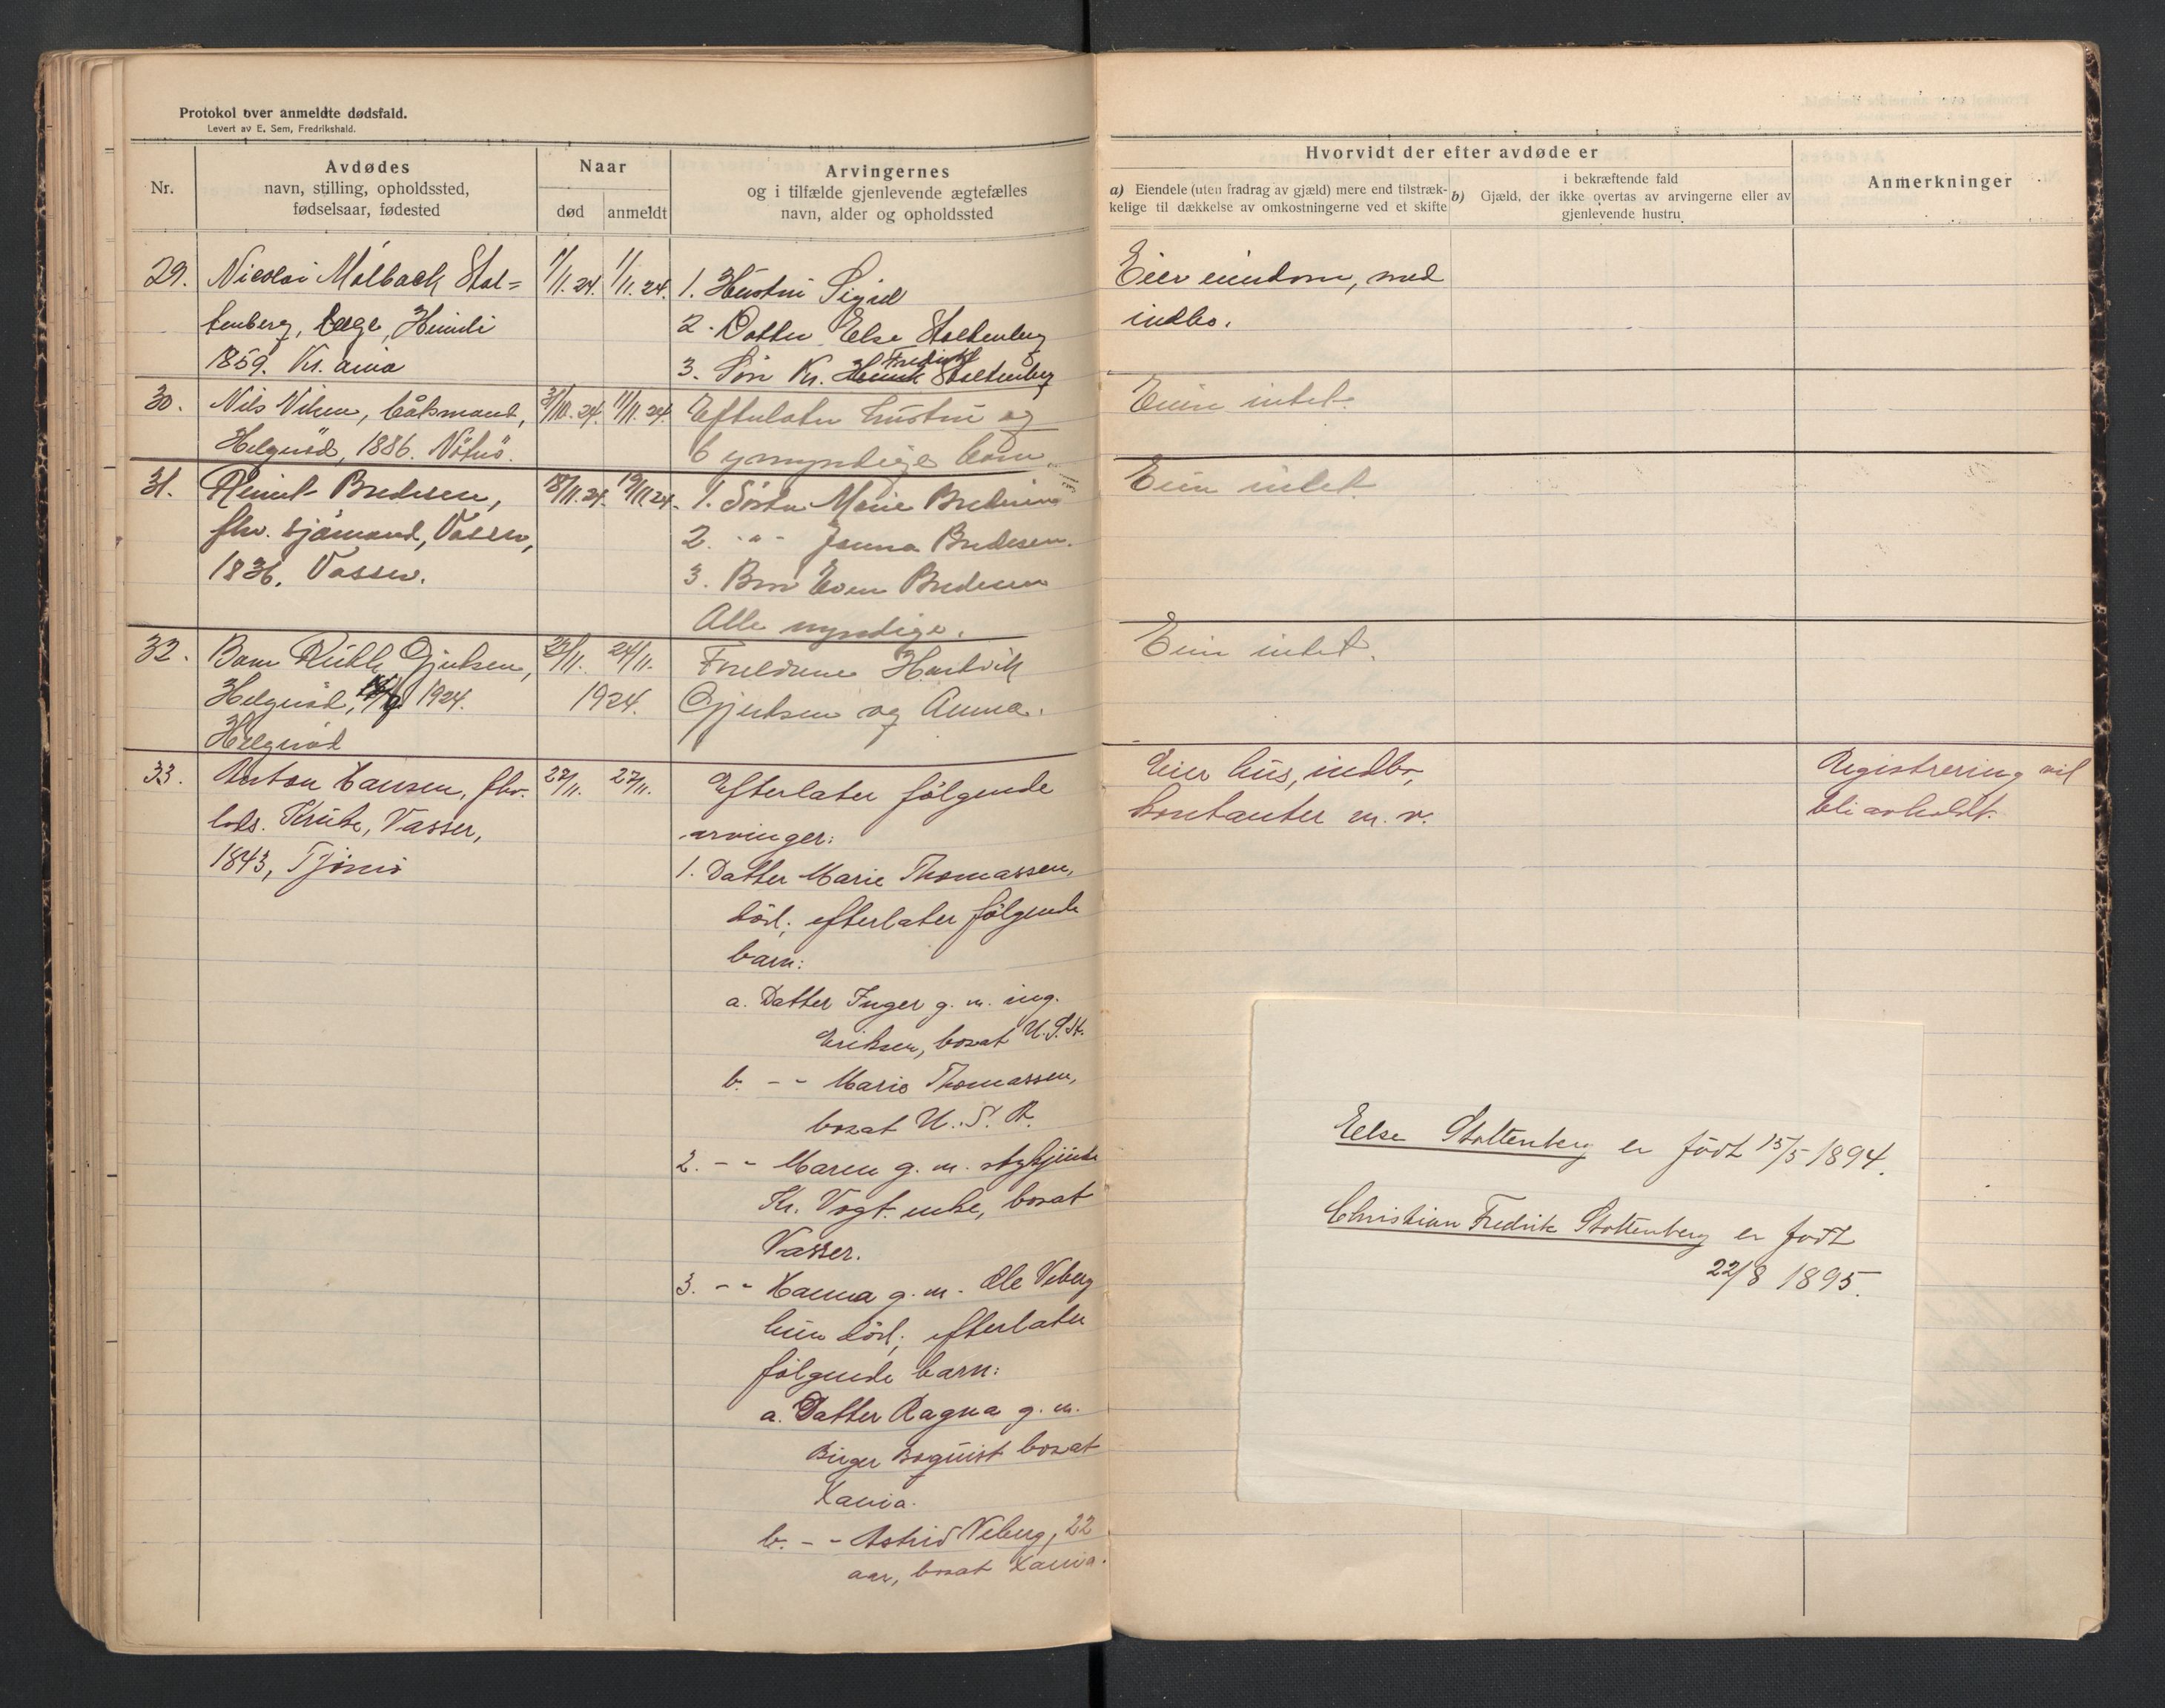 Protokol over anmeldte dødsfald.
Levert av E. Sem, Fredrikshald.
Nr.
Avdødes
navn, stilling, opholdssted,
fødselsaar, fødested
Naar
død
anmeldt
Arvingernes
og i tilfælde gjenlevende ægtefælles
navn, alder og opholdssted
29. Nicolai Malback Stol=
tenberg, læge, Heimli
1859. Kr.ania
1/11.24. 1/11.24.
1. Hustru Sigrid
2. Datter Else Stoltenberg
3. Søn Kr. Fredrik Stoltenberg
30. Nils Nilsen, baatsmand,
Helgerød, 1886. Nøtterø.
31/10.24. 11/11.24.
Efterlater hustru og
6 umyndige barn.
31. Bredesen,
fhv. sjømand, Vasser,
1836. Vasser.
18/11.24. 19/11.24.
1. Søster Marie Bredesen
2. -"- Bredesen.
3. Bror Even Bredesen
Alle myndige.
32. Barn Gjertsen,
Helgerød, 1924.
Helgerød
23/11. 24/11.
1924.
Forældrene Hartvik
Gjertsen og Anna.
33. Anton Hansen, fhv.
lods. Kruke, Vasser,
1843, Tjømø
27/11. 27/11.
Efterlater følgende
arvinger:
1. Datter Marie Thomassen,
død; efterlater følgende
barn:
a. Datter Inger g. m. ing.
Eriksen, bosat U.S.A.
b. - - Marie Thomassen,
bosat U.S.A.
2. - - Maren g. m.
Kr. Vogt. enke, bosat
Vasser.
3. - - Hanna g. m. Ole Viberg
hun död; efterlater
følgende barn:
a. Datter Ragna g. m.
Birger Boquist bosat
Xania.
b. - - Astrid Viberg, 22
aar, bosat Xania.
Hvorvidt der efter avdøde er
a) Eiendele (uten fradrag av gjæld) mere end tilstræk-
kelige til dækkelse av omkostningerne ved et skifte
i bekræftende fald
b) Gjæld, der ikke overtas av arvingerne eller av
gjenlevende hustru
Anmerkninger
Eier eiendom, med
indbo.
Eier intet.
Eier intet.
Eier intet.
Eier hus, indbo,
kontanter m. v.
Registrering vil
bli avholdt.
Else Stoltenberg er født 15/5 1894.
Christian Fredrik Stoltenberg er født
22/8 1895.